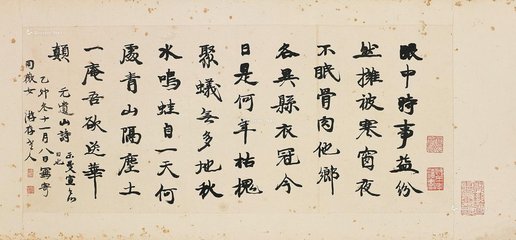 眼中時事益紛
然擁被寒窗夜
不眠骨肉他鄉
各異縣衣冠今
日是何年枯槐
聚蟻無多地秋
水鳴蛙自一天何
處青山隔塵土
一庵吾欲送華
顛
元遺山詩
乙卯冬十一月八日寫寄
同薇女 游存老人